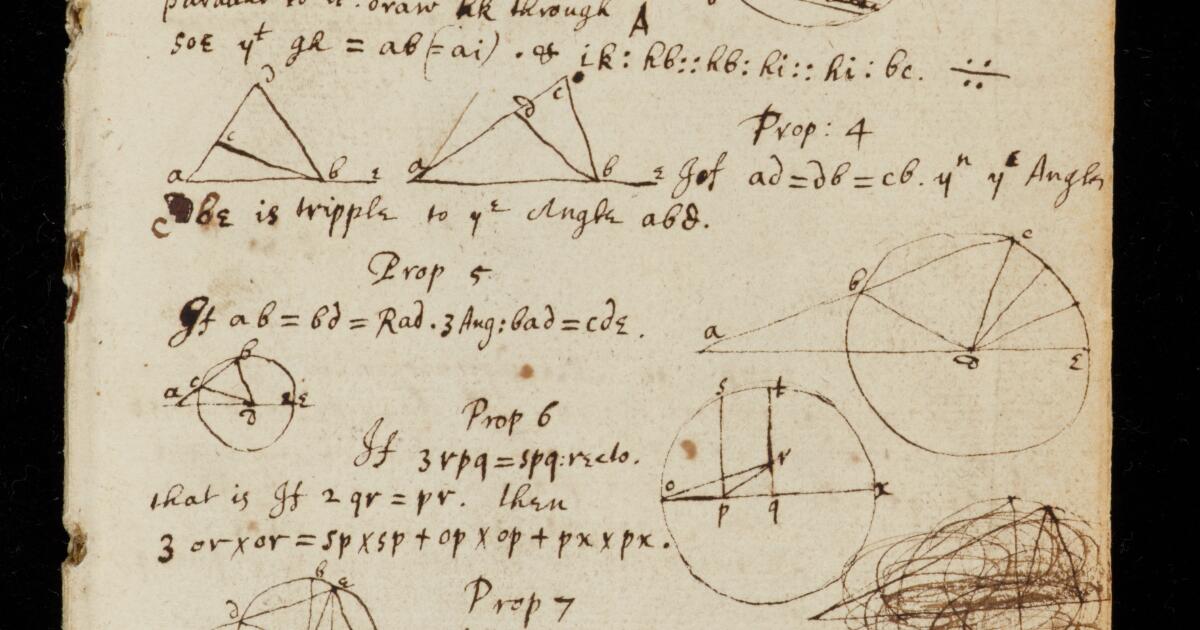 parallel to it. draw hk through A
soe yt gh = ab (=ai) . & ik : hb :: hb : hi :: hi : bc. ÷
d c a b ε
a d c b ε
Prop: 4
If ad = db = cb. yn yε Angle
cbε is tripplε to yε Anglε abd.
Prop 5
If ab = bd = Rad. 3 Ang: bad = cdε.
a b c d ε
a c b d ε
Prop 6
If 3 rpq = spq: rεcto.
that is If 2 qr = pr. then
3 or x or = sp x sp + op x op + px x px.
s t r o p q x
Prop 7
b ε d